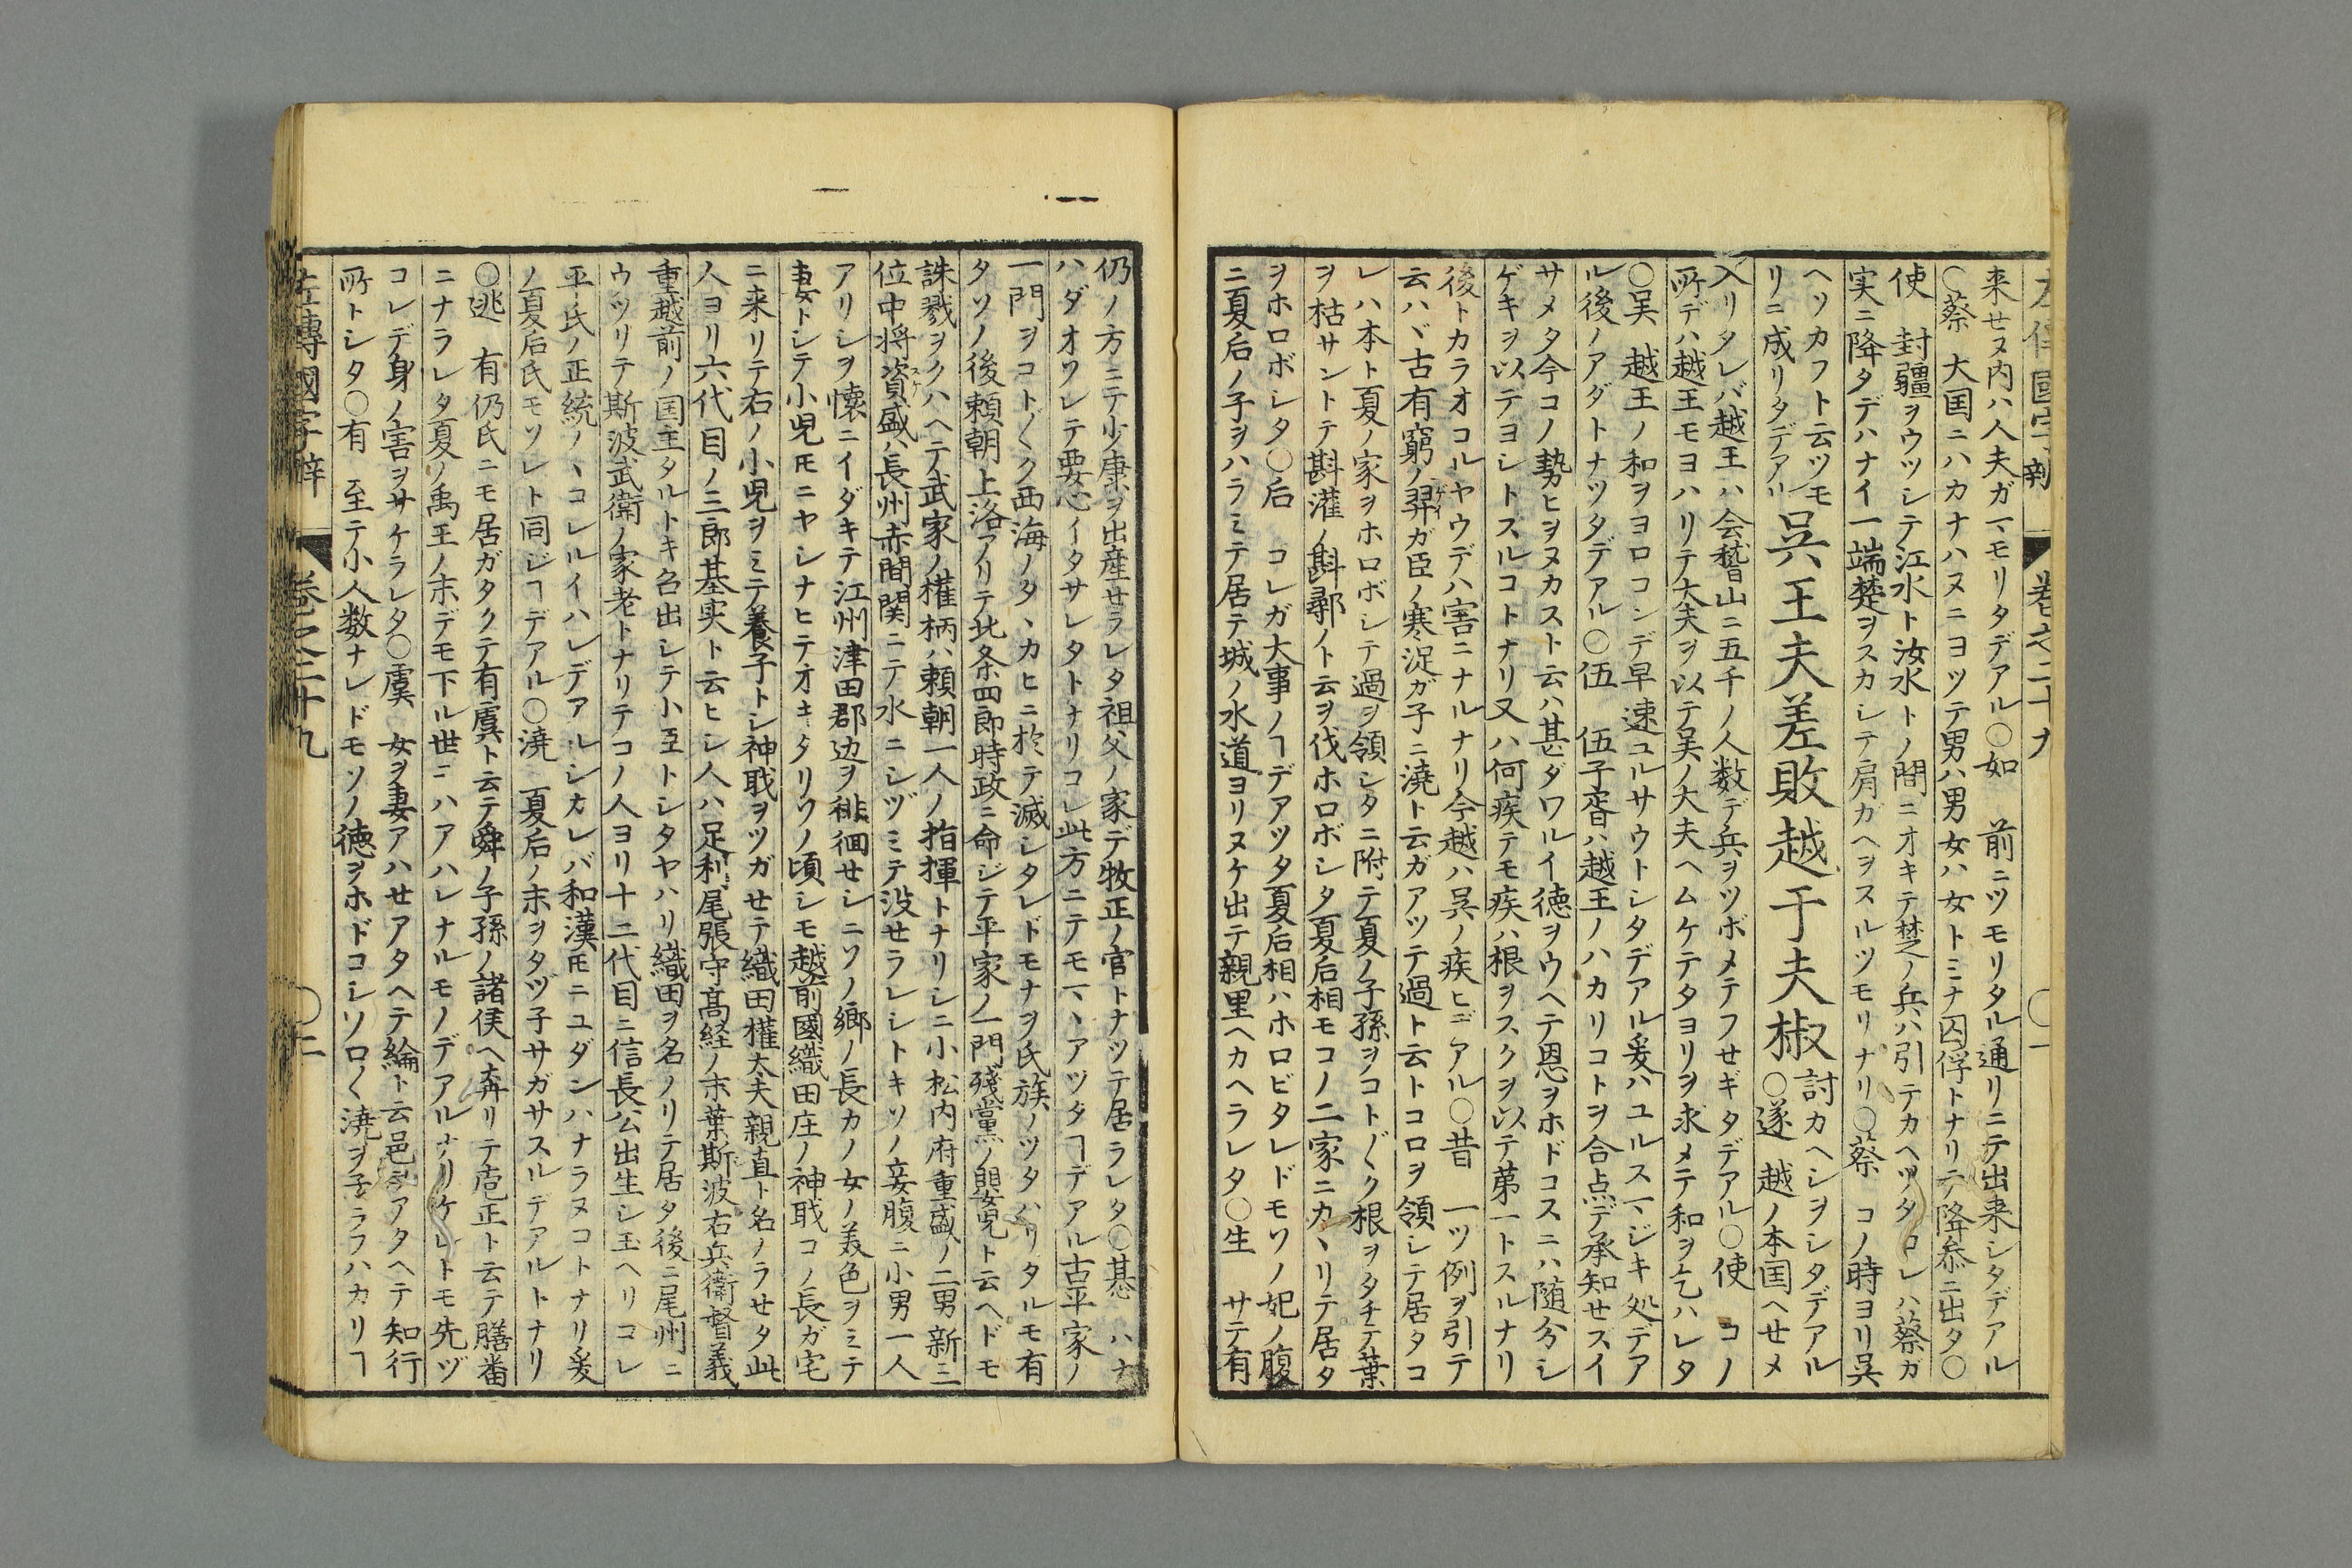 左傳國字辯 巻之二十九 〇一
来セヌ内ハ人夫ガマモリタデアル〇如 前ニツモリタル通リニテ出来シタデアル
〇蔡 大国ニハカナハヌニヨツテ男ハ男女ハ女トミナ囚俘トナリテ降参ニ出タ〇
使 封疆ヲウツシテ江水ト汝水トノ間ニオキテ楚ノ兵ハ引テカヘツタコレハ蔡ガ
実ニ降タデハナイ一端楚ヲスカシテ肩ガヘヲスルツモリナリ〇蔡 コノ時ヨリ呉
ヘソカフト云ツモリニ成リタデアル
呉王夫差敗越于夫椒
討カヘシヲシタデアル〇遂 越ノ本国ヘセメ
入リタレバ越王ハ会稽山ニ五千ノ人数デ兵ヲツボメテフセギタデアル〇使 コノ
所デハ越王モヨハリテ大夫ヲ以テ呉ノ大夫ヘムケテタヨリヲ求メテ和ヲ乞ハレタ
〇呉 越王ノ和ヲヨロコンデ早速ユルサウトシタデアル爰ハユルスマジキ処デア
ル後ノアダトナツタデアル〇伍 伍子胥ハ越王ノハカリコトヲ合点デ承知セスイ
サメタ今コノ勢ヒヲヌカスト云ハ甚ダワルイ徳ヲウヘテ恩ヲホドコスニハ随分シ
ゲキヲ以テヨシトスルコトナリ又ハ何疾テモ疾ハ根ヲスクヲ以テ第一トスルナリ
後トカラオコルヤウデハ害ニナルナリ今越ハ呉ノ疾ヒデアル〇昔 一ツ例ヲ引テ
云ハヾ古有窮ノ羿ガ臣ノ寒浞ガ子ニ澆ト云ガアツテ過ト云トコロヲ領シテ居タコ
レハ本ト夏ノ家ヲホロボシテ過ヲ領シタニ附テ夏ノ子孫ヲコト〲ク根ヲタチテ葉
ヲ枯サントテ斟灌ノ斟鄩ノト云ヲ伐ホロボシタ夏后相モコノ二家ニカヽリテ居タ
ヲホロボシタ〇后 コレガ大事ノヿデアツタ夏后相ハホロビタレドモソノ妃ノ腹
ニ夏后ノ子ヲハラミテ居テ城ノ水道ヨリヌケ出テ親里ヘカヘラレタ〇生 サテ有
仍ノ方ニテ少康ヲ出産セラレタ祖父ノ家デ牧正ノ官トナツテ居ラレタ〇惎 ハナ
ハダオソレテ要心イタサレタトナリコレ此方ニテモマヽアツタヿデアル古平家ノ
一門ヲコト〲ク西海ノタヽカヒニ於テ滅シタレドモナヲ氏族ノツタハリタルモ有
タソノ後頼朝上洛アリテ北条四郎時政ニ命ジテ平家ノ一門殘黨ノ嬰児ト云ヘドモ
誅戮ヲクハヘテ武家ノ權柄ハ頼朝一人ノ指揮トナリシニ小松内府重盛ノ二男新三
位中将資盛ハ長州赤間関ニテ水ニシヅミテ没セラレシトキソノ妾腹ニ小男一人
アリシヲ懐ニイダキテ江州津田郡辺ヲ徘徊セシニソノ鄉ノ長カノ女ノ美色ヲミテ
妻トシテ小児𪜈ニヤシナヒテオキタリソノ頃シモ越前國織田庄ノ神職コノ長ガ宅
ニ来リテ右ノ小児ヲミテ養子トシ神職ヲツガセテ織田權太夫親直ト名ノラセタ此
人ヨリ六代目ノ三郎基実ト云ヒシ人ハ足利尾張守高経ノ末葉斯波右兵衛督義
重越前ノ国主タルトキ名出シテ小五トシタヤハリ織田ヲ名ノリテ居タ後ニ尾州ニ
ウツリテ斯波武衛ノ家老トナリテコノ人ヨリ十二代目ニ信長公出生シ玉ヘリコレ
平氏ノ正統ノヽコレルイハレデアルシカレバ和漢𪜈ニユダンハナラヌコトナリ爰
ノ夏后氏モソレト同ジヿデアル〇澆 夏后ノ末ヲタヅ子サガサスルデアルトナリ
〇逃 有仍氏ニモ居ガタクテ有虞ト云テ舜ノ子孫ノ諸侯ヘ奔リテ庖正ト云テ膳番
ニナラレタ夏ノ禹王ノ末デモ下ル世ニハアハレナルモノデアルナリケレトモ先ヅ
コレデ身ノ害ヲサケラレタ〇虞 女ヲ妻アハセアタヘテ綸ト云邑ヲアタヘテ知行
所トシタ〇有 至テ小人数ナレドモソノ徳ヲホドコシソロ〱澆ヲ子ラフハカリヿ
左傳國字辯 巻之二十九 〇二